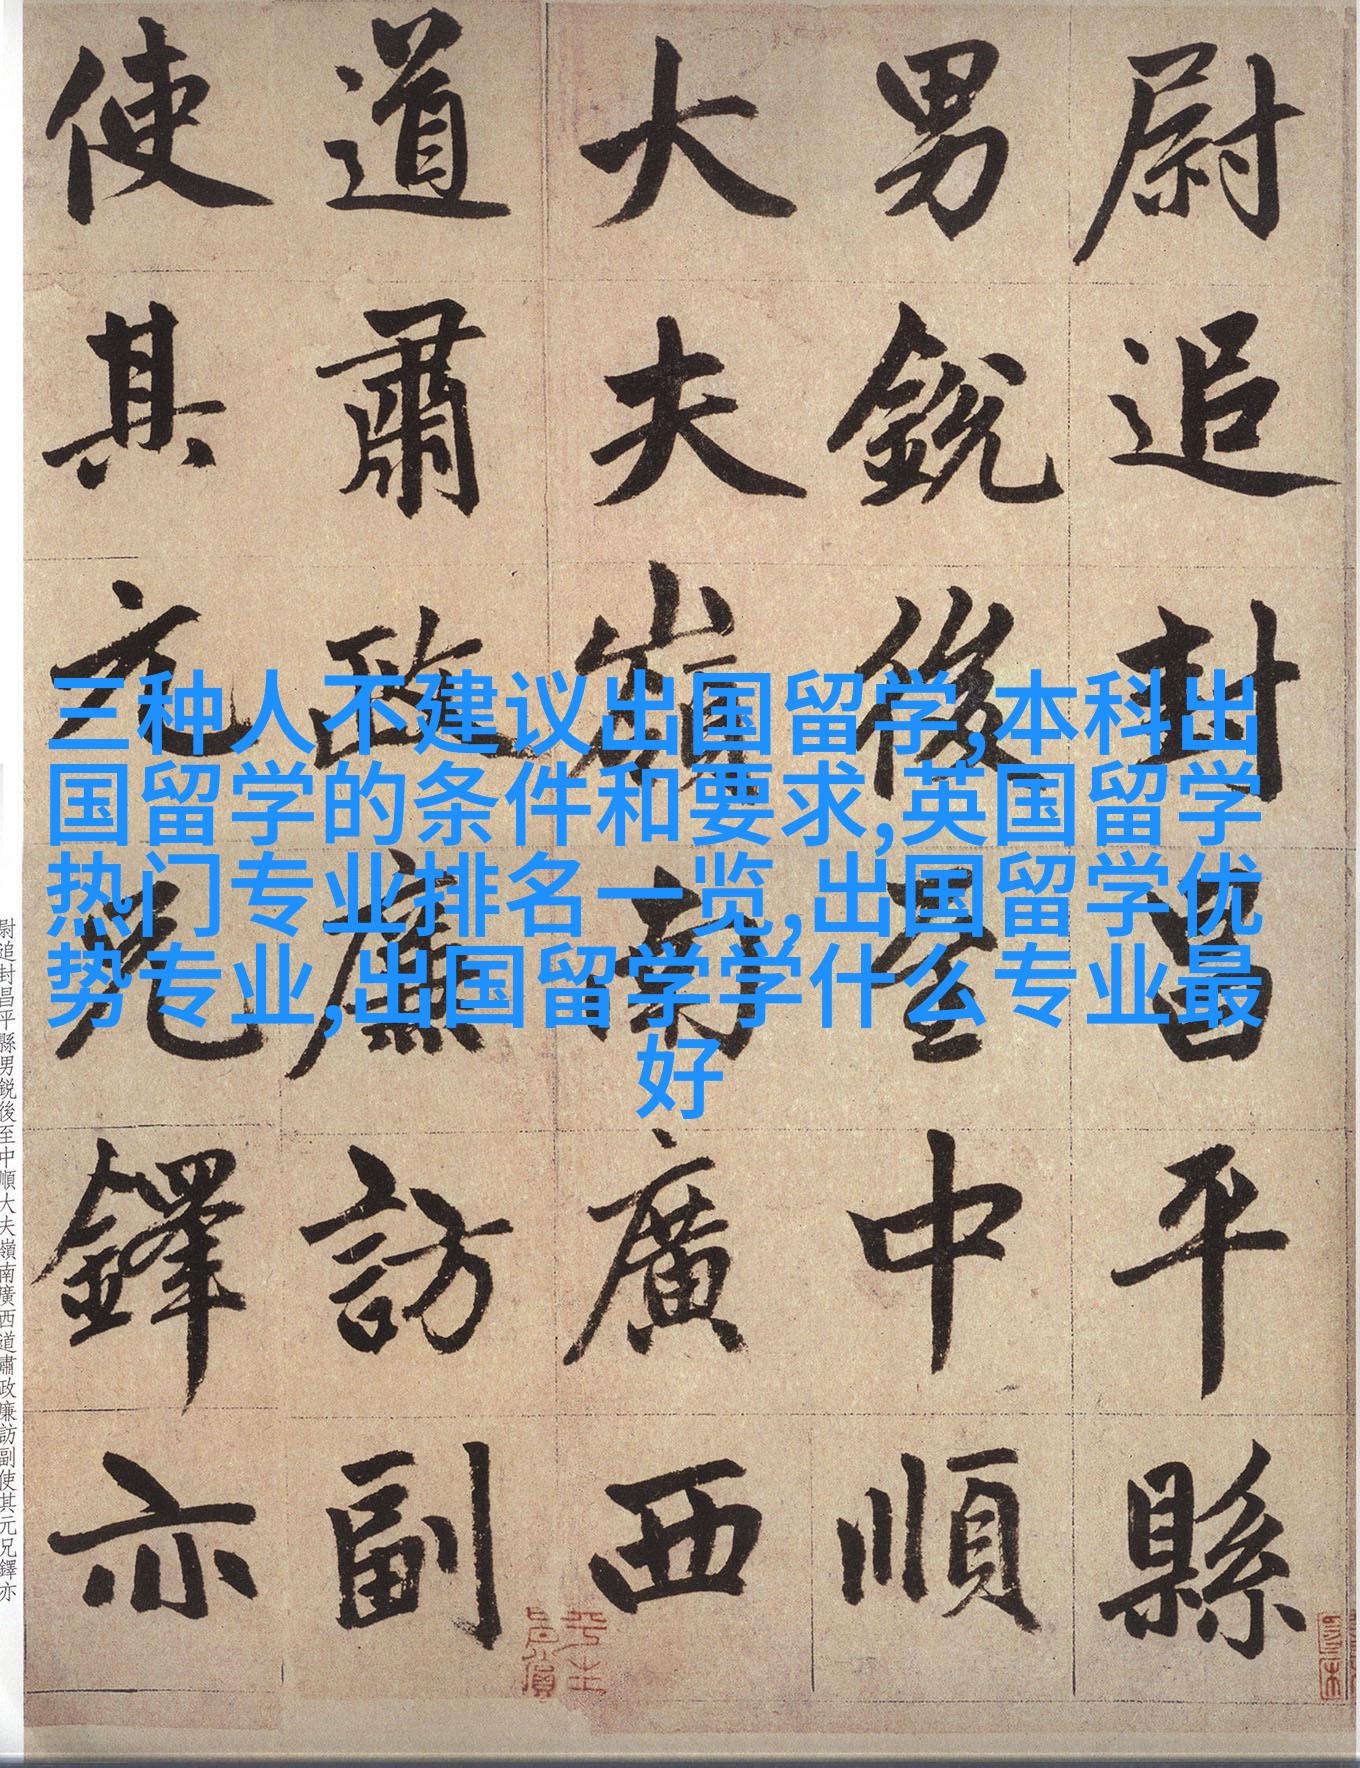 尉追封昌平縣
男銳後至中順
大夫嶺南廣西
道肅政廉訪副
使其元兄鐸亦
三种人不建议出国留学,本科出
国留学的条件和要求,英国留学
热门专业排名一览,出国留学优
势专业,出国留学学什么专业最
好
尉追封昌平縣男銳後至中順大夫嶺南廣西道肅政廉訪副使其元兄鐸亦